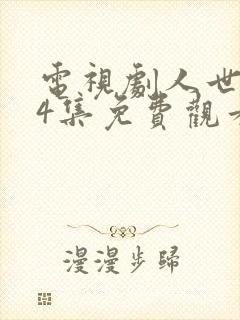 電視劇人世
4集免費觀
漫漫步歸